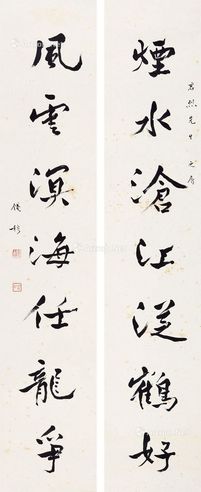 煙水滄江從鶴好
君烈先生 之屬
風雲溟海任龍爭